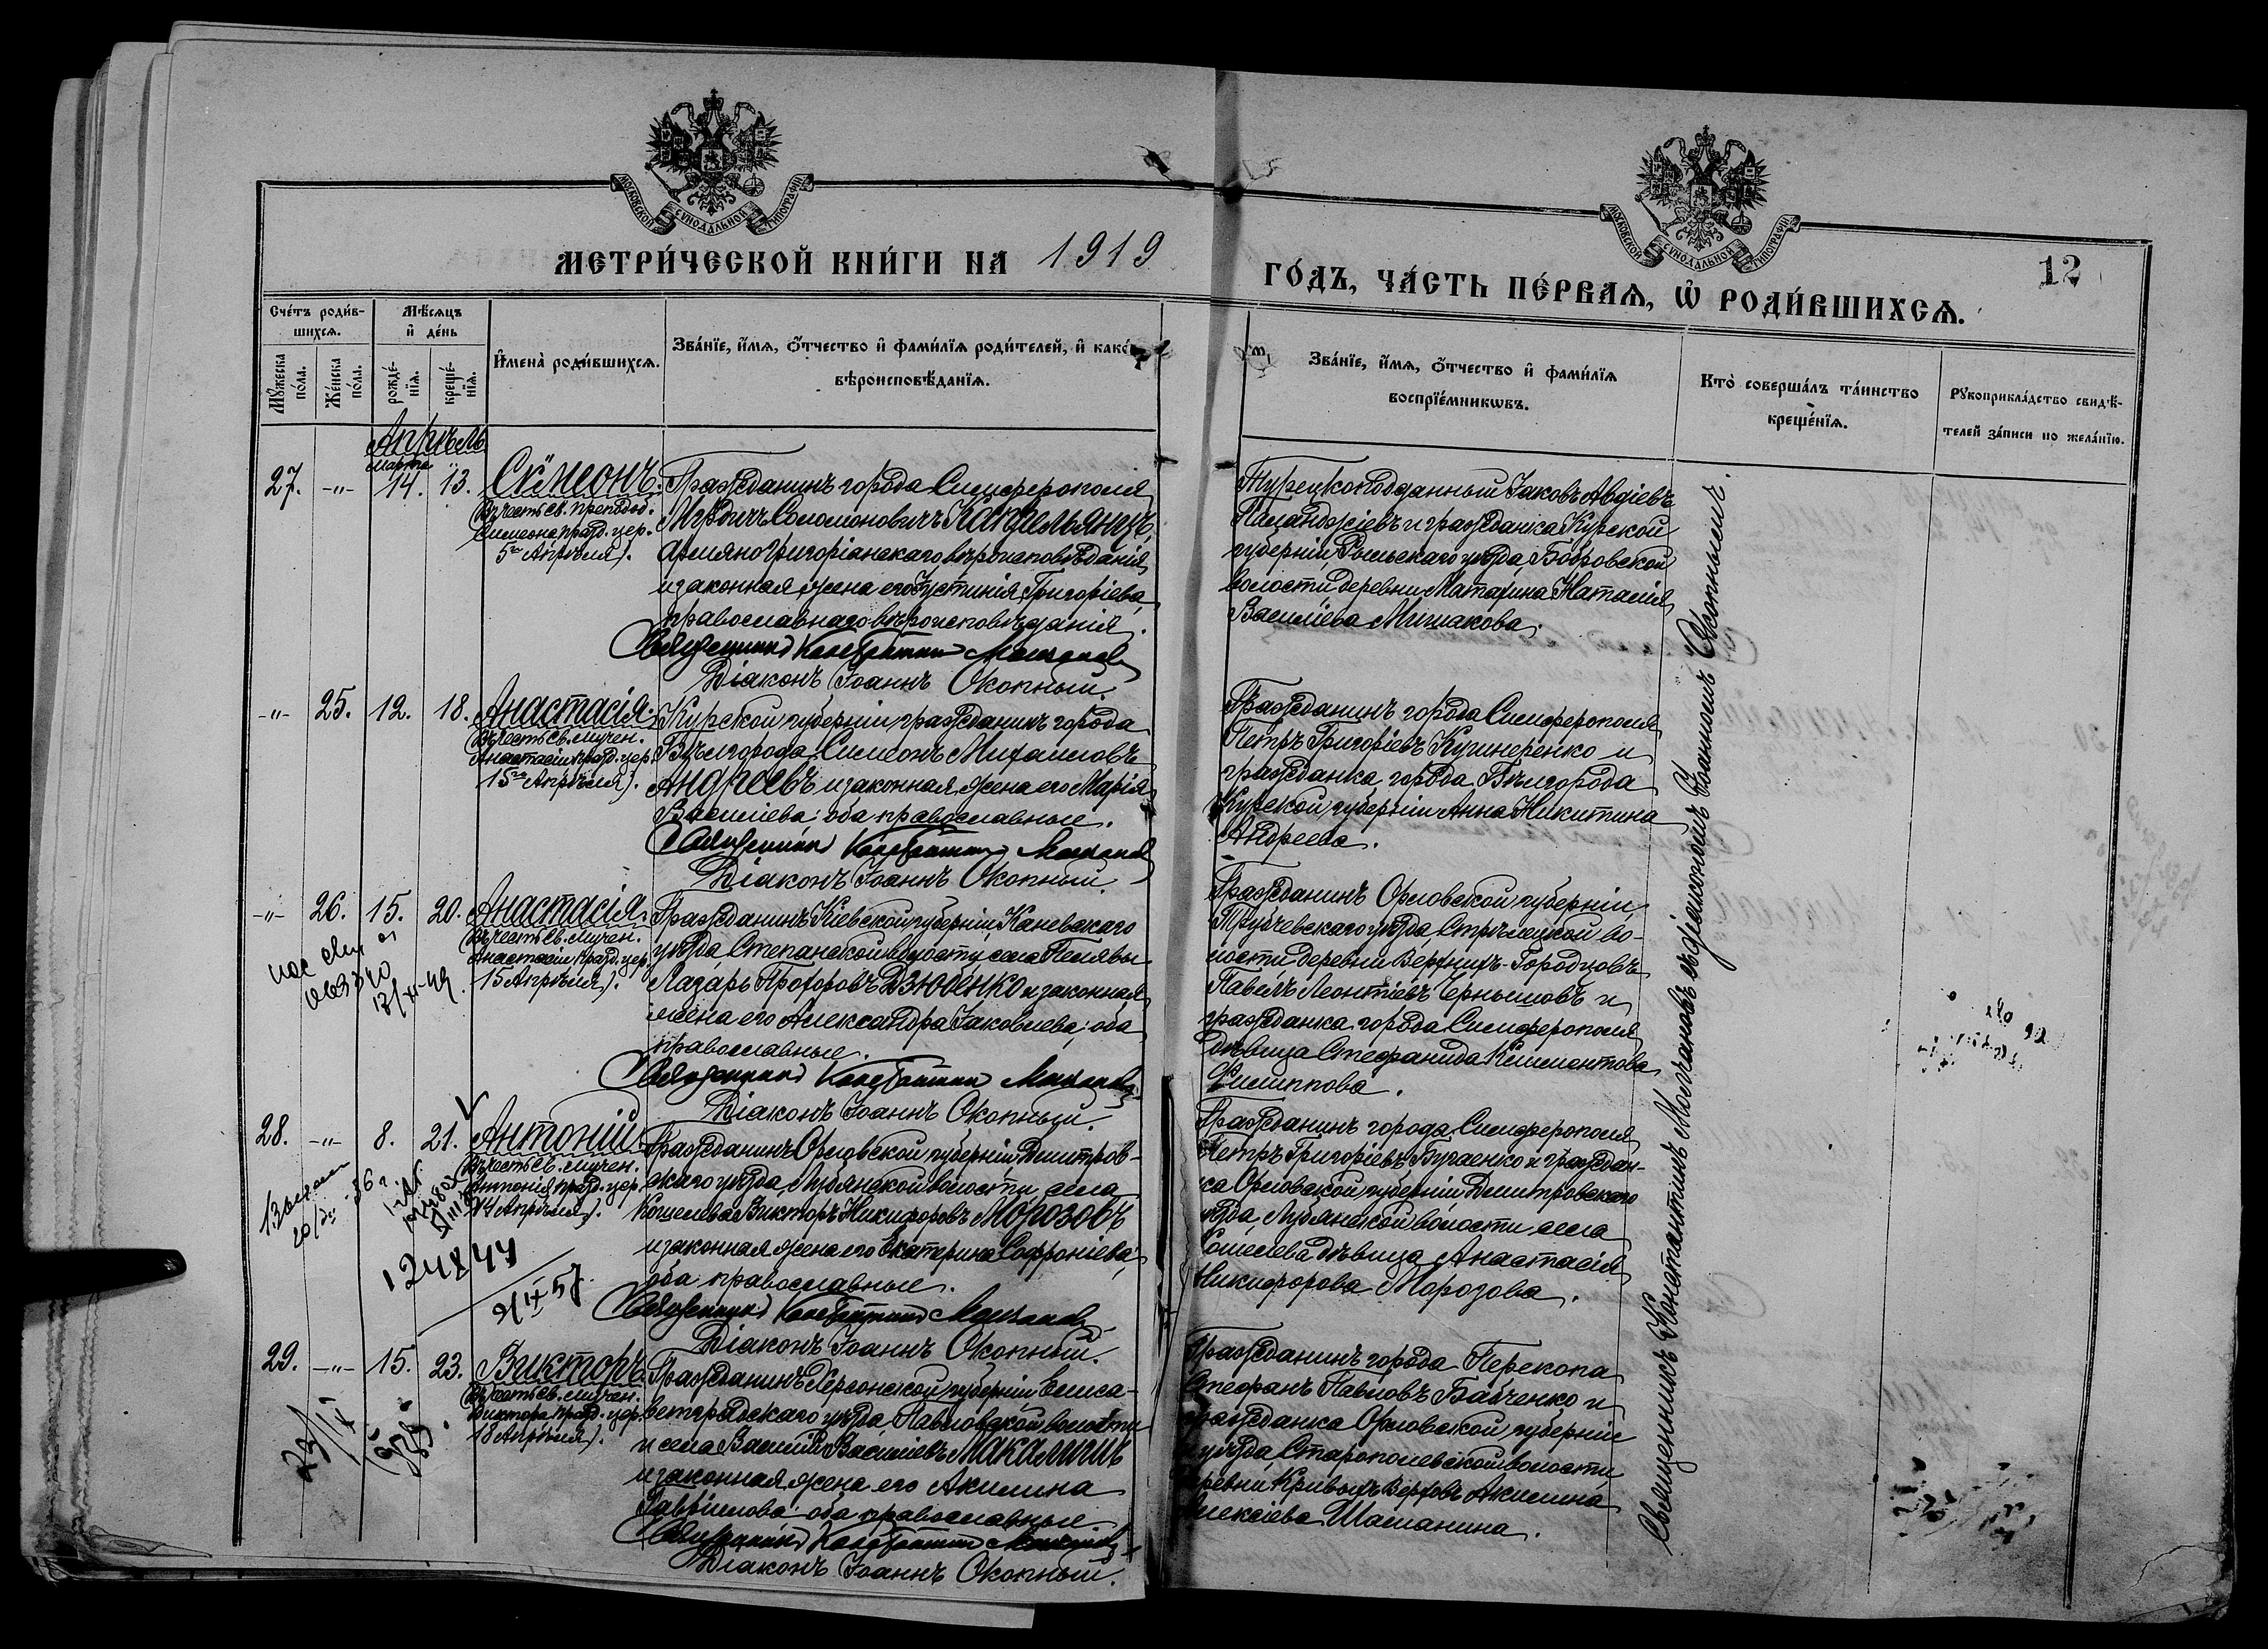 МОСКОВСКОЙ СѴНОДАЛЬНОЙ ТИПОГРАФІИ
МОСКОВСКОЙ СѴНОДАЛЬНОЙ ТИПОГРАФІИ
МЕТРИ́ЧЕСКОЙ КНИ́ГИ НА 1919
ГО́ДЪ, ЧА́СТЬ ПЕ́РВАѦ, Ѡ҆ РОДИ́ВШИХСѦ.
12
Сче́тъ роди́в-
шихсѧ.
Мѣ́сѧцъ
и҆ де́нь
Мꙋ́жеска
по́ла.
Же́нска
по́ла.
рожде́-
нїѧ.
креще́-
нїѧ.
И҆мена̀ роди́вшихсѧ.
Зва́нїе, и҆́мѧ, ѻ҆́тчество и҆ фами́лїѧ роди́телей, и҆ како́
вѣроисповѣ́данїѧ.
Зва́нїе, и҆́мѧ, ѻ҆́тчество и҆ фами́лїѧ
воспрїе́мникѡвъ.
Кто̀ соверша́лъ та́инство
креще́нїѧ.
Рꙋкоприкла́дство свидѣ́-
телей за́писи по жела́нїю.
Апрѣль
марта
27. -„- 14. 13. Сѵмеонъ.
Въ честь св. преподоб.
Симеона, празд. цер.
5го Апрѣля).
Гражданинъ города Симферополя
Мкртичъ Соломоновичъ
армяно-григоріанскаго вѣроисповѣданія
и законная жена его Іустинія Григоріева,
православнаго вѣроисповѣданія.
Священникъ Константинъ Молчановъ
Діаконъ Іоаннъ Окопный.
Турецкоподданный Іаковъ Авдіевъ
и гражданка Курской
губерніи, Рыльскаго уѣзда, Бобровской
волости, деревни Наталія
Василіева
-„- 25. 12. 18. Анастасія.
Въ честь св. мучен.
Анастасіи, празд. цер.
15го Апрѣля).
Курской губерніи гражданинъ города
Бѣлгорода Симеонъ Михаиловъ
Андреевъ и законная жена его Марія
Василіева; оба православные.
Священникъ Константинъ Молчановъ
Діаконъ Іоаннъ Окопный.
Гражданинъ города Симферополя
Петръ Григоріевъ Кушнеренко и
гражданка города Бѣлгорода
Курской губерніи Анна Никитина
Андреева.
-„- 26. 15. 20. Анастасія.
Въ честь св. мучен.
Анастасіи, празд. цер.
15 Апрѣля).
Гражданинъ Кіевской губерніи, Каневскаго
уѣзда, Степанской волости, села
Лазарь Прохоровъ Дзюбенко и законная
жена его Александра Іаковлева; оба
православные.
Священникъ Константинъ Молчановъ
Діаконъ Іоаннъ Окопный.
Гражданинъ Орловской губерніи,
Трубчевскаго уѣзда, Стрѣлецкой во-
лости деревни Верхнихъ-Городцовъ
Павелъ Леонтіевъ Чернышовъ и
гражданка города Симферополя
дѣвица Стефанида Климентова
Филиппова.
28. -„- 8. 21. Антоній
Въ честь св. мучен.
Антонія, празд. цер.
14 Апрѣля).
Гражданинъ Орловской губерніи, Дмитров-
скаго уѣзда, Лубянской волости, села
Кошелева Викторъ Никифоровъ Морозовъ
и законная жена его Екатерина Софроніева;
оба православные.
Священникъ Константинъ Молчановъ
Діаконъ Іоаннъ Окопный.
124844
9/IX 57.
Гражданинъ города Симферополя
Петръ Григоріевъ Бугаенко и граждан-
ка Орловской губерніи Дмитровскаго
уѣзда, Лубянской волости села
Кошелева дѣвица Анастасія
Никифорова Морозова.
29. -„- 15. 23. Викторъ.
Въ честь св. мучен.
Виктора, празд. цер.
18 Апрѣля).
Гражданинъ Херсонской губерніи Елиса-
ветградскаго уѣзда, Павловской волости
и села Василій Василіевъ
и законная жена его Акилина
Гавріилова; оба православные
Священникъ Константинъ Молчановъ
Діаконъ Іоаннъ Окопный.
Гражданинъ города Перекопа
Стефанъ Павловъ Байченко и
гражданка Орловской губерніи
уѣзда, волости,
деревни Кривыхъ Верховъ Акилина
Алексіева Шаманина.
Священникъ Константинъ Молчановъ съ діакономъ Іоанномъ Окопнымъ.